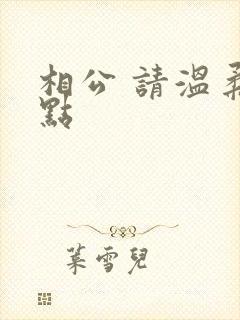 相公 請溫柔
點
葉雪兒